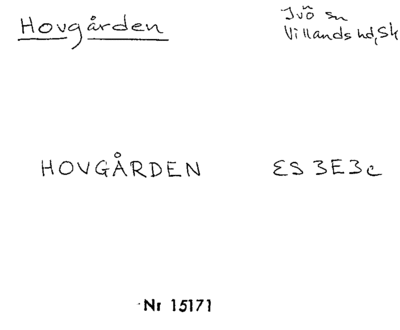 Hovgården
Ivö sn
Villands hd, Sk
HOVGÅRDEN ES 3E3c
Nr 15171